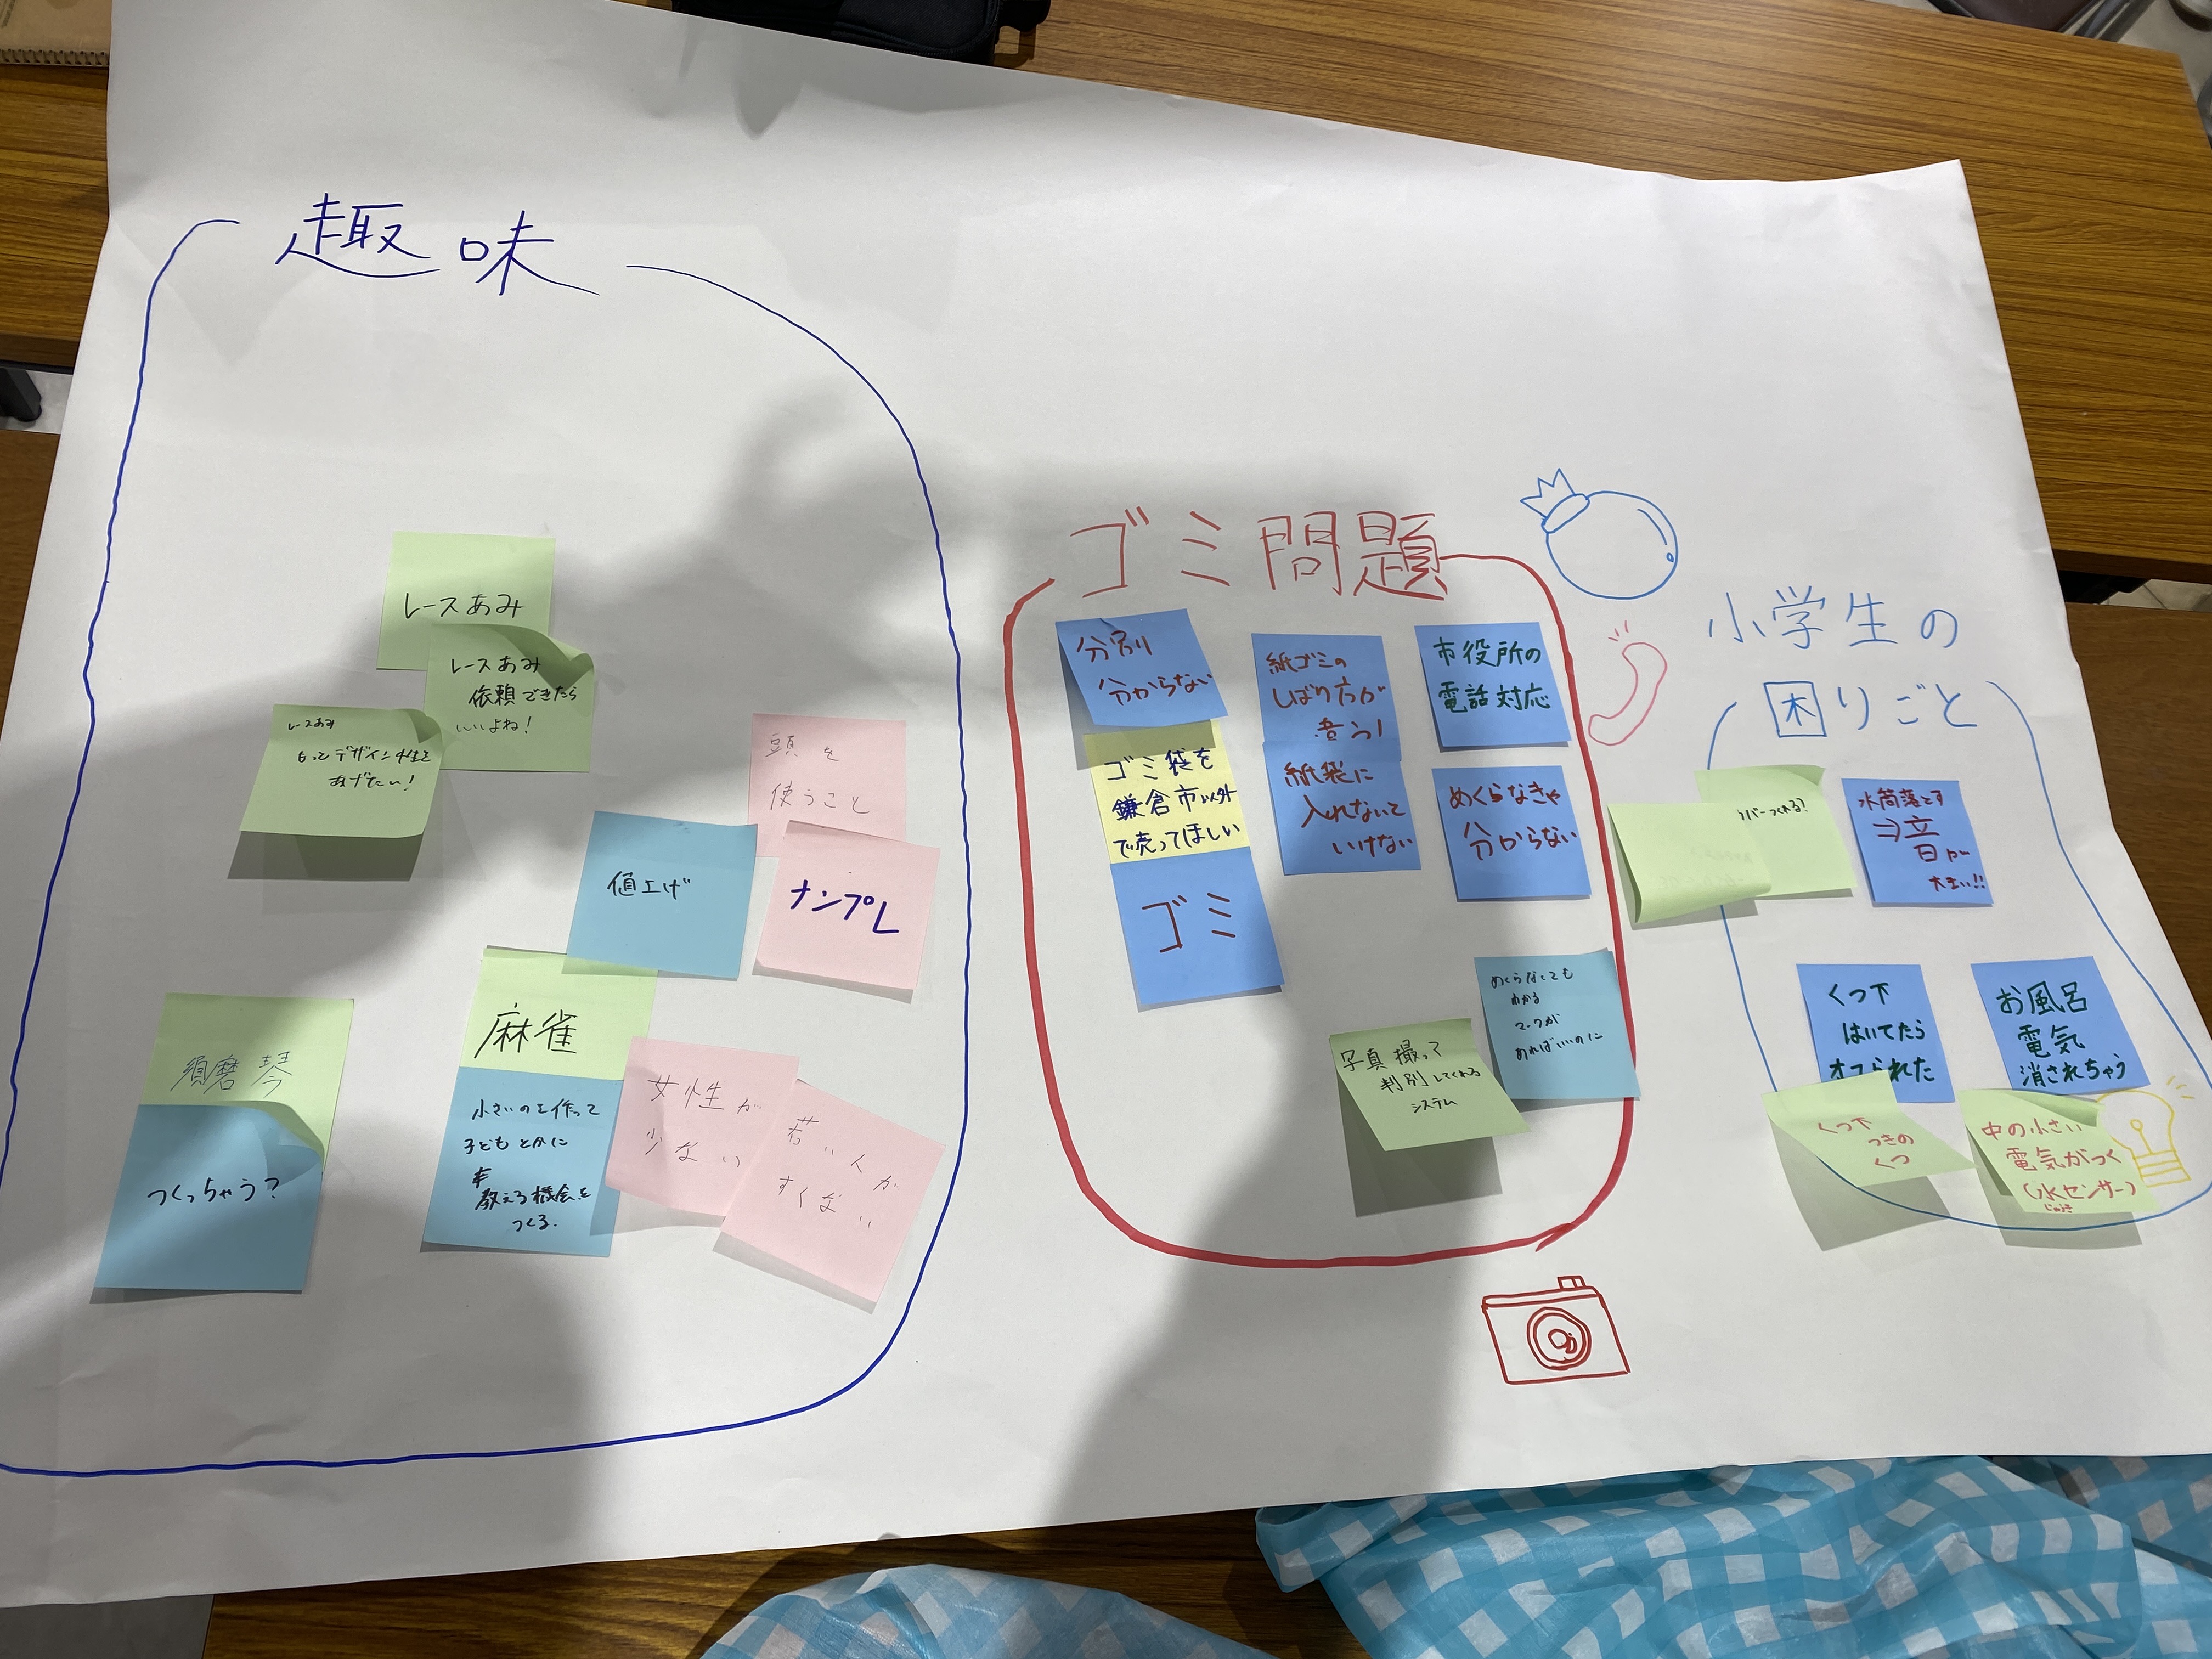 趣味
レースあみ
レースあみ
依頼できたら
いいよね!
レースあみ
もっとデザイン性を
あげたい!
頭を
使うこと
値上げ
ナンプレ
須磨琴
つくっちゃう?
麻雀
小さいのを作って
子どもとかに
教える機会を
つくる.
女性が
少ない
若い人が
すくない
ゴミ問題
分別
分からない
ゴミ袋を
鎌倉市以外
で売ってほしい
ゴミ
紙ゴミの
しばり方が
違う!
紙袋に
入れないと
いけない
市役所の
電話対応
めくらなきゃ
分からない
めくらなくても
わかる
マークが
あればいいのに
写真撮って
判別してくれる
システム
小学生の
困りごと
水筒落とす
⇒音が
大きい!!
くつ下
はいてたら
オコられた
くつ下
つきの
くつ
お風呂
電気
消されちゃう
中の小さい
電気がつく
(水センサー)